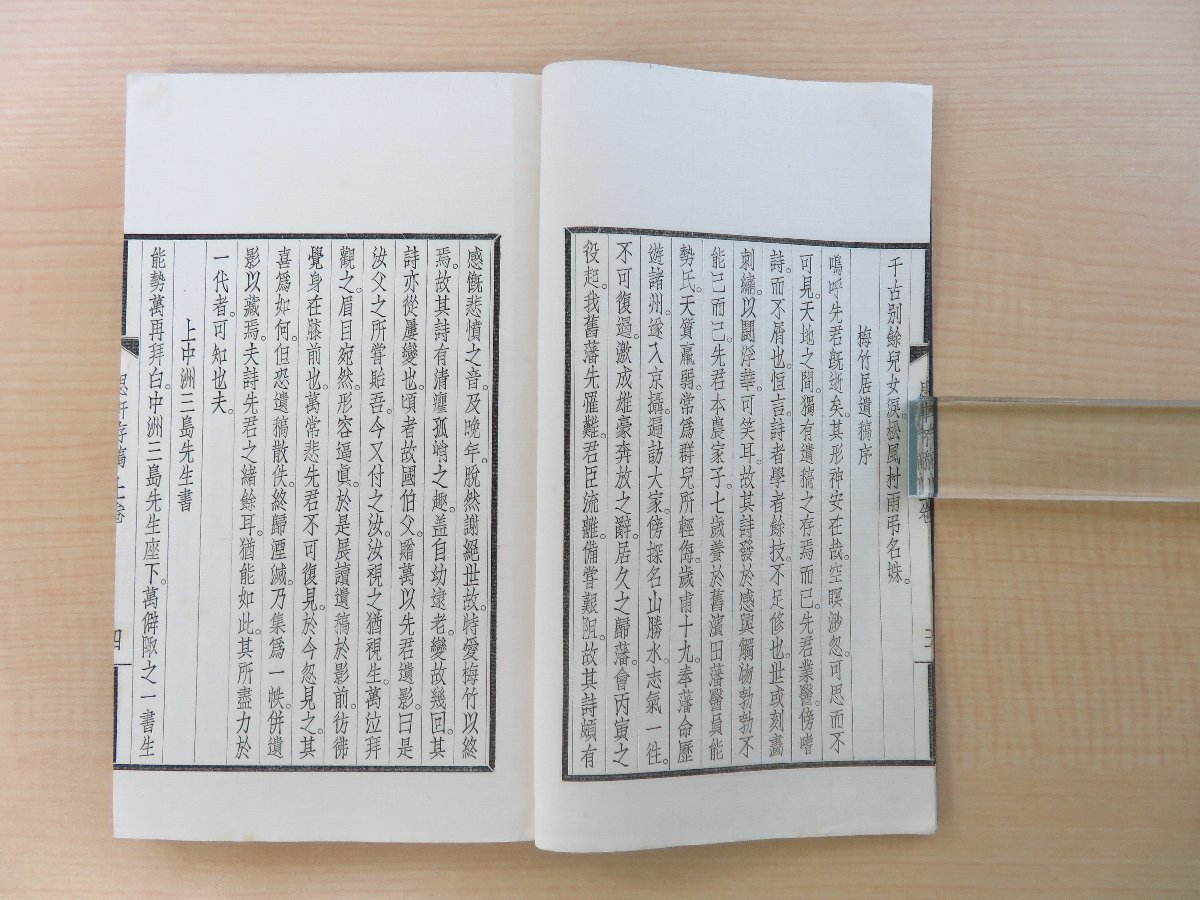 千古別餘兒女淚。松風村雨弔名姝。
梅竹居遺稿序
嗚呼先君既逝矣。其形神安在哉。空暝渺忽。可思而不
可見。天地之間。獨有遺稿之存焉而已。先君業醫。傍嗜
詩。而不屑也。恒言。詩者學者餘技。不足修也。世或刻畫
刺繡。以鬪浮華。可笑耳。故其詩發於感興。觸物勃勃不
能已而已。先君本農家子。七歲養於舊濱田藩醫員能
勢氏。天資羸弱。常爲群兒所輕侮。歲甫十九。奉藩命歷
遊諸州。遂入京攝。遍訪大家。傍探名山勝水。志氣一往。
不可復遏。激成雄豪奔放之辭。居久之歸藩。會丙寅之
役起。我舊藩先罹難。君臣流離。備嘗艱阻。故其詩頗有
感慨悲憤之音。及晚年。脫然謝絕世故。特愛梅竹以終
焉。故其詩有清癯孤峭之趣。蓋自幼逮老。變故幾回。其
詩亦從屢變也。頃者故國伯父。贈萬以先君遺影。曰是
汝父之所嘗貽吾。今又付之汝。汝視之猶視生。萬泣拜
觀之。眉目宛然。形容逼眞。於是展讀遺稿於影前。彷彿
覺身在膝前也。萬常悲先君不可復見。於今忽見之。其
喜爲如何。但恐遺稿散佚。終歸湮滅。乃集爲一帙。併遺
影以藏焉。夫詩先君之緒餘耳。猶能如此。其所盡力於
一代者。可知也夫。
上中洲三島先生書
能勢萬再拜白。中洲三島先生座下。萬僻陬之一書生
存稿上卷
四